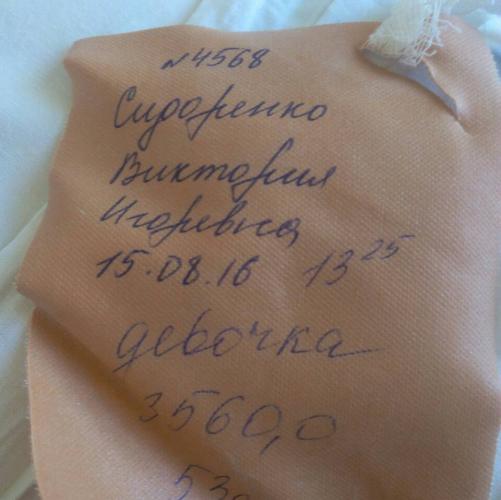 №4568
Сидоренко
Виктория
Игоревна
15.08.16 13²⁵
девочка
3560,0
53